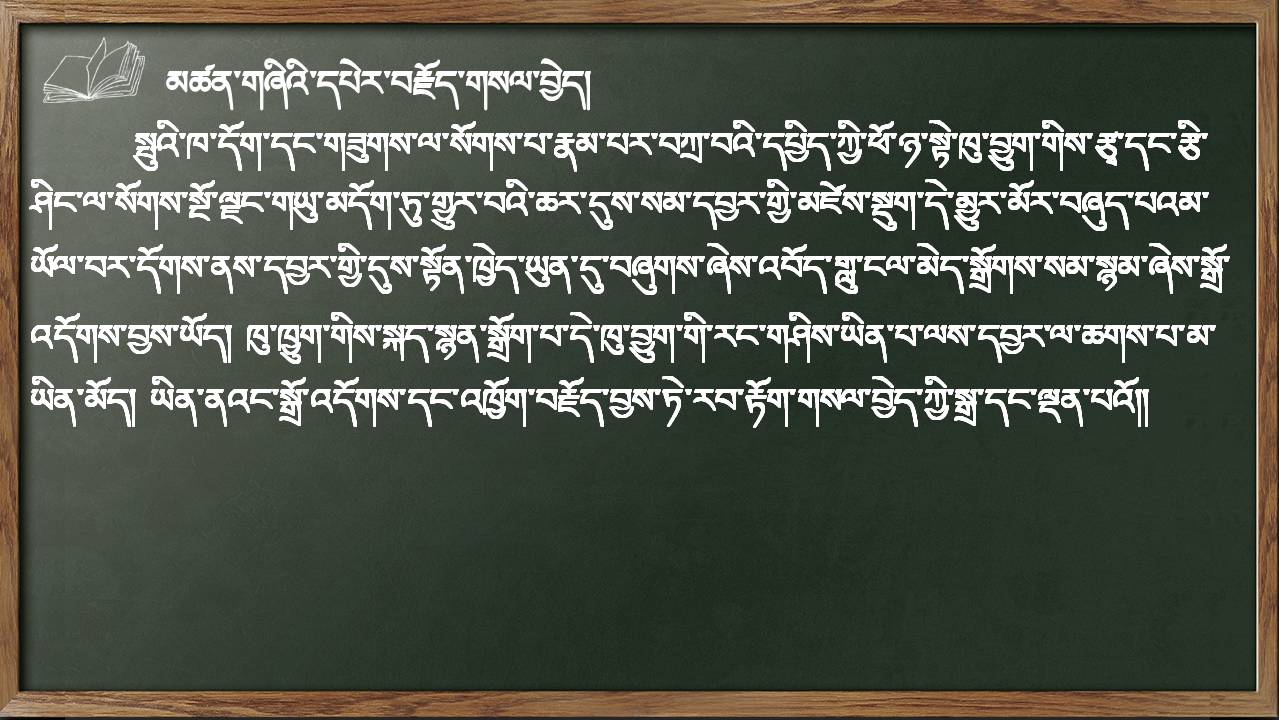 མཚན་གཞིའི་དཔེར་བརྗོད་གསལ་བྱེད།
སྤུའི་ཁ་དོག་དང་གཟུགས་ལ་སོགས་པ་རྣམ་པར་བཀྲ་བའི་དཔྱིད་ཀྱི་ཕོ་ཉ་སྟེ་ཁུ་བྱུག་གིས་རྩྭ་དང་རྩི་
ཤིང་ལ་སོགས་སྔོ་ལྗང་གཡུ་མདོག་ཏུ་གྱུར་བའི་ཆར་དུས་སམ་དབྱར་གྱི་མཛེས་སྡུག་དེ་མྱུར་མོར་བཞུད་པའམ་
ཡོལ་བར་དོགས་ནས་དབྱར་གྱི་དུས་སྟོན་ཁྱེད་ཡུན་དུ་བཞུགས་ཞེས་འབོད་གླུ་ངལ་མེད་སྒྲོགས་སམ་སྙམ་ཞེས་སྒྲོ་
འདོགས་བྱས་ཡོད། ཁུ་ཁྱུག་གིས་སྐད་སྙན་སྒྲོག་པ་དེ་ཁུ་བྱུག་གི་རང་གཤིས་ཡིན་པ་ལས་དབྱར་ལ་ཆགས་པ་མ་
ཡིན་མོད། ཡིན་ནའང་སྒྲོ་འདོགས་དང་འཁྱོག་བརྗོད་བྱས་ཏེ་རབ་རྟོག་གསལ་བྱེད་ཀྱི་སྒྲ་དང་ལྡན་པའོ།།